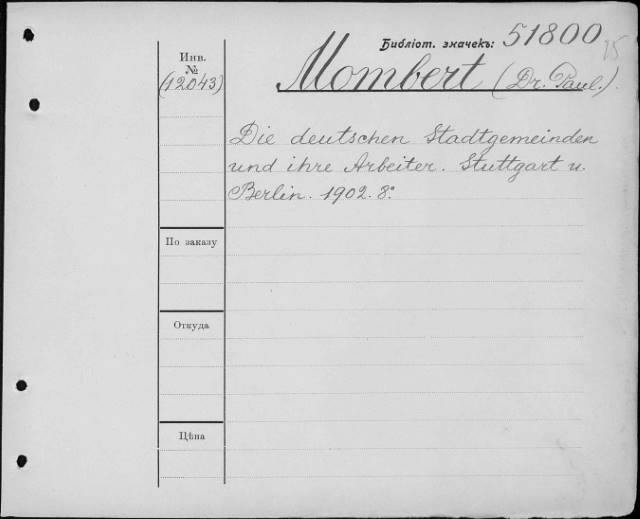 Библіот. значекъ: 51800
25
Инв.
№
(12043)
Mombert (Dr. Paul.).
Die deutschen Stadtgemeinden
und ihre Arbeiter. Stuttgart u.
Berlin. 1902. 8º.
По заказу
Откуда
Цѣна